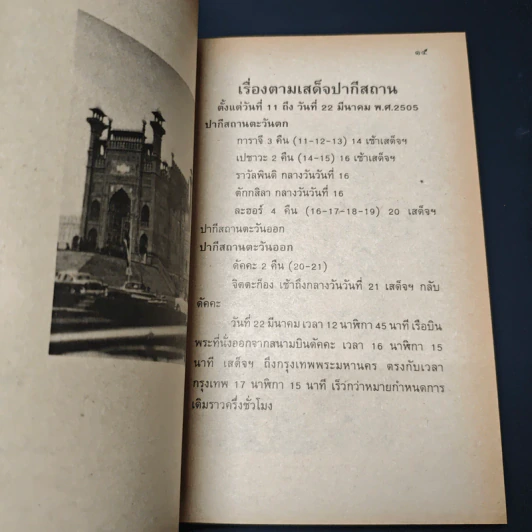 ๑๕
เรื่องตามเสด็จปากีสถาน
ตั้งแต่วันที่ 11 ถึง วันที่ 22 มีนาคม พ.ศ.2505
ปากีสถานตะวันตก
การาจี 3 คืน (11-12-13) 14 เช้าเสด็จฯ
เปชาวะ 2 คืน (14-15) 16 เช้าเสด็จฯ
ราวัลพินดี กลางวันวันที่ 16
ตักกสิลา กลางวันวันที่ 16
ละฮอร์ 4 คืน (16-17-18-19) 20 เสด็จฯ
ปากีสถานตะวันออก
ปากีสถานตะวันออก
ดัคคะ 2 คืน (20-21)
จิตตะก๊อง เช้าถึงกลางวันวันที่ 21 เสด็จฯ กลับ
ดัคคะ
วันที่ 22 มีนาคม เวลา 12 นาฬิกา 45 นาที เรือบิน
พระที่นั่งออกจากสนามบินดัคคะ เวลา 16 นาฬิกา 15
นาที เสด็จฯ ถึงกรุงเทพพระมหานคร ตรงกับเวลา
กรุงเทพ 17 นาฬิกา 15 นาที เร็วกว่าหมายกำหนดการ
เดิมราวครึ่งชั่วโมง